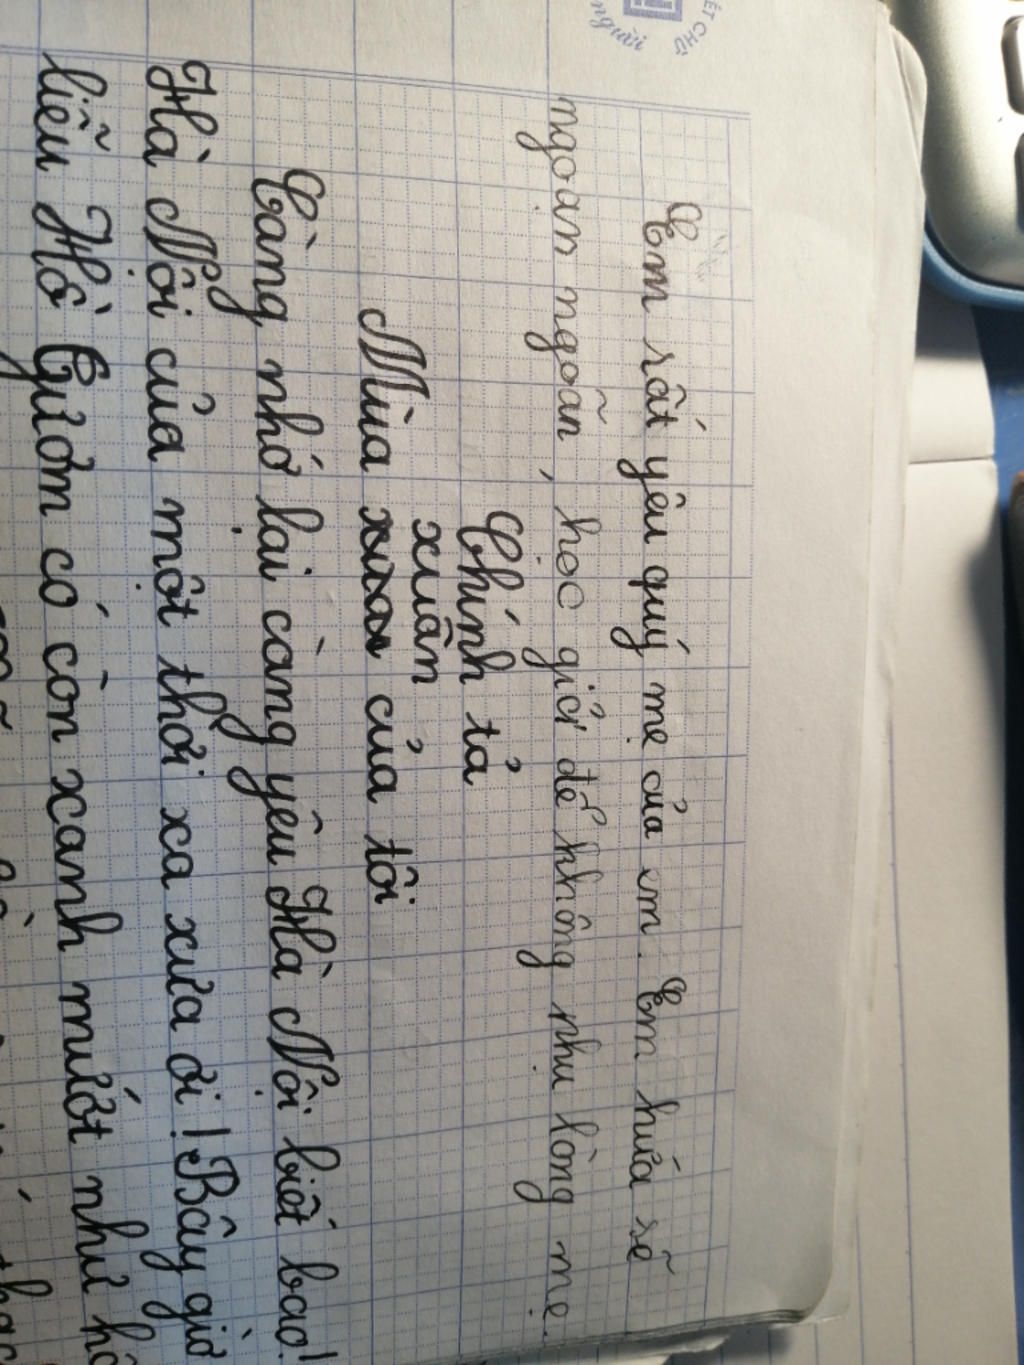 người
ẾT CHỮ
Em rất yêu quý mẹ của em. Em hứa sẽ
ngoạn ngoãn, học giỏi để không phụ lòng mẹ.
Chính tả
xuân
Mùa của tôi
Càng nhớ lại càng yêu Hà Nội biết bao!
Hà Nội của một thời xa xưa ơi! Bây giờ
liễu Hồ Gươm có còn xanh mướt như